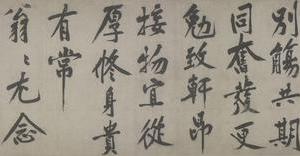 別觴共期
同奮發更
勉致軒昂
接物宜從
厚修身貴
有常
翁〻尤念